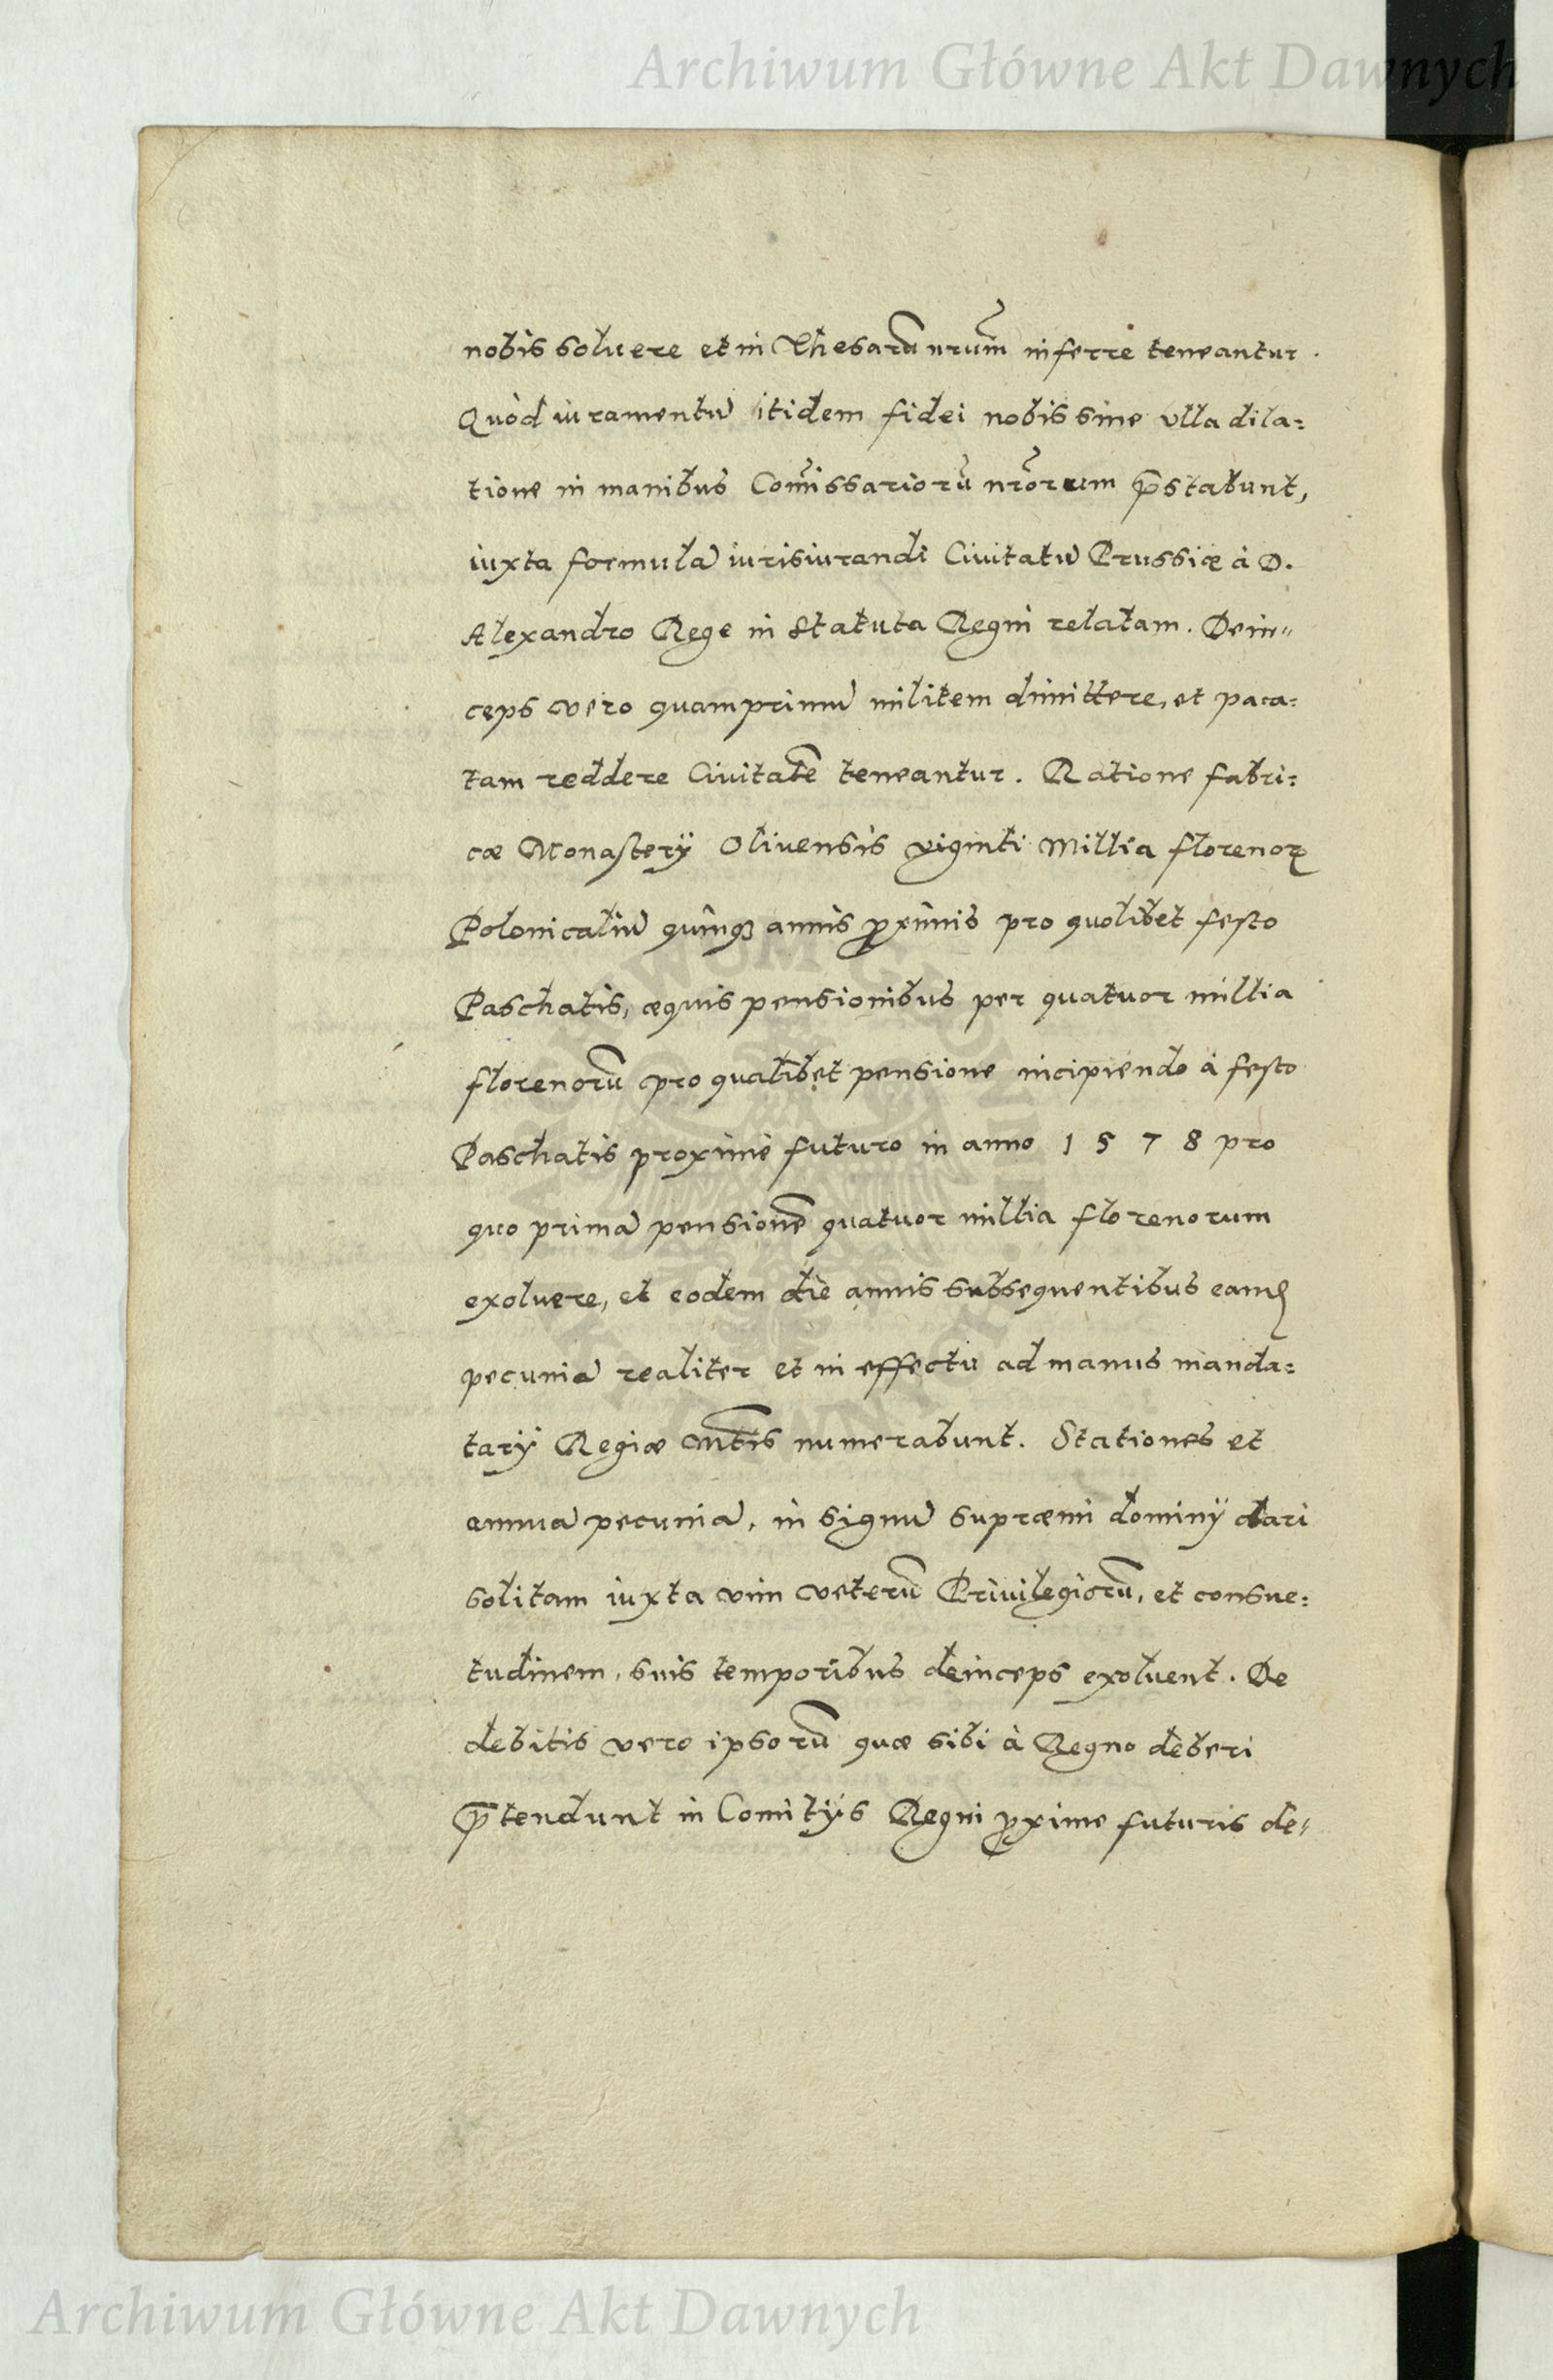 Archiwum Główne Akt Dawnych
nobis soluere et in Thesarū nrum̄ inferre teneantur.
Quòd iuramentū itidem fidei nobis sine vlla dila=
tione in manibus Com̄issariorū nr̄orum p̄stabunt,
iuxta formulā iurisiurandi Ciuitatū Prussiæ à D.
Alexandro Rege in Statuta Regni relatam. Dein=
ceps vero quamprimū militem dimittere, et paca=
tam reddere Ciuitatē teneantur. Ratione fabri=
cæ Monasterÿ Oliuensis viginti Millia florenorꝝ
Polonicaliū quinqꝫ annis ꝓximis pro quolibet festo
Paschatis, æquis pensionibus per quatuor millia
florenorū pro qualibet pensione incipiendo à festo
Paschatis proximè futuro in anno 1 5 7 8 pro
quo primā pensionē quatuor millia florenorum
exoluere, et eodem die annis subsequentibus eamd̨
pecuniā realiter et in effectu ad manus manda=
tarÿ Regiæ Mt̄is numerabunt. Stationes et
annuā pecuniā, in signū supræmi dominÿ dari
solitam iuxta vim veterū Priuilegiorū, et consue=
tudinem, suis temporibus deinceps exoluent. De
debitis vero ipsorū quæ sibi à Regno deberi
p̄tendunt in Comitÿs Regni ꝓxime futuris de=
Archiwum Główne Akt Dawnych